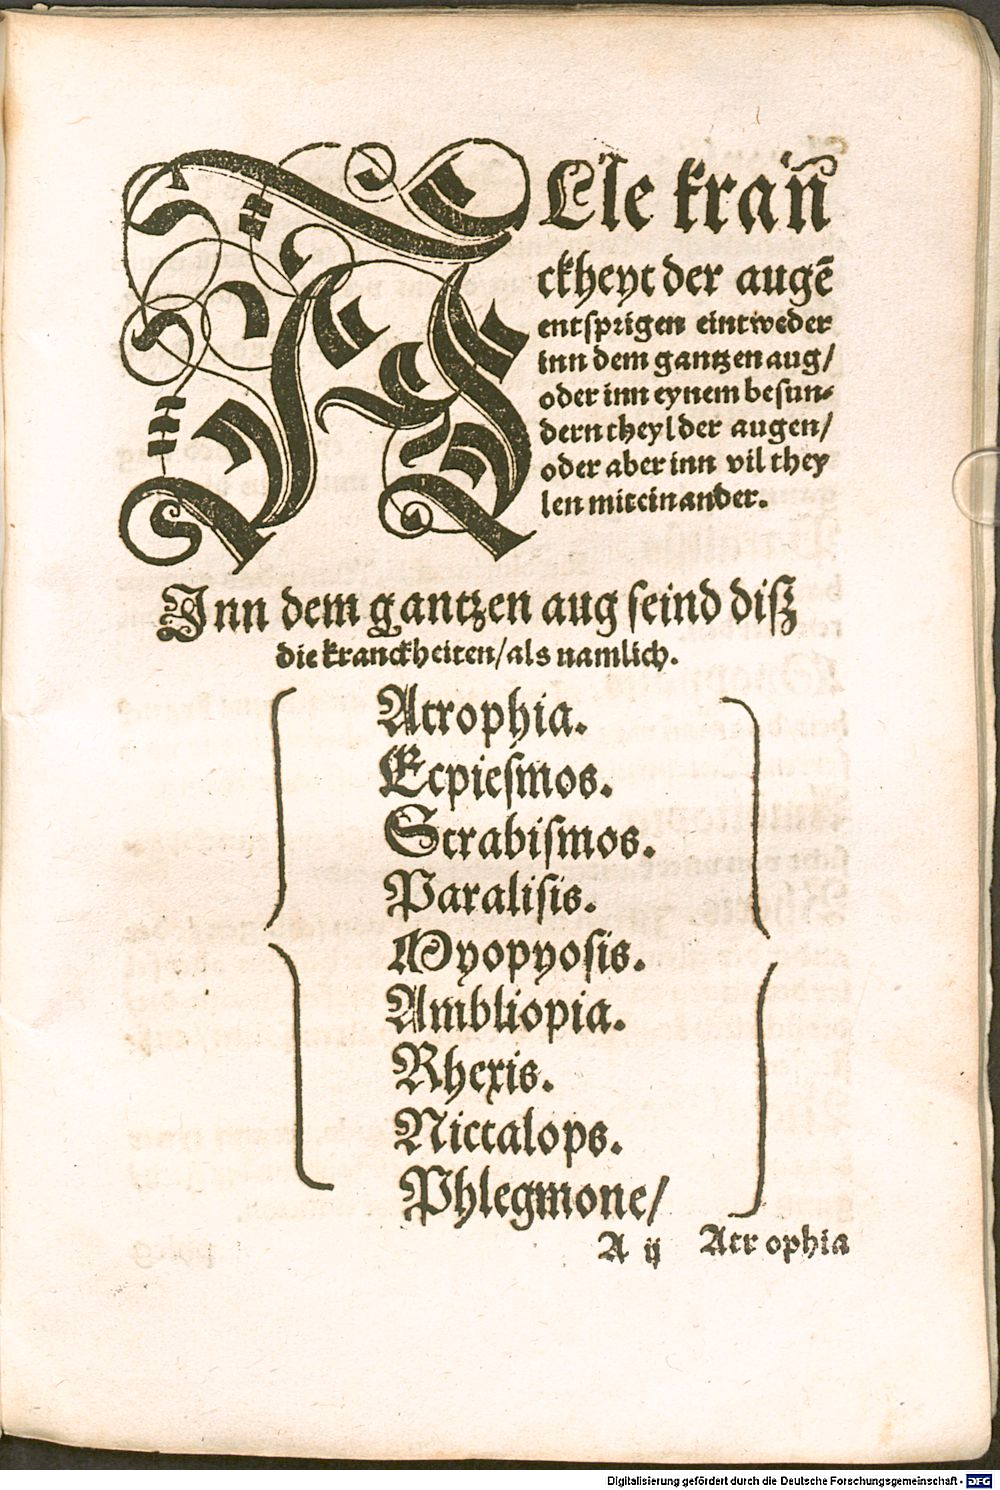 ALle krañ
ckheyt der augē
entsprigen eintweder
inn dem gantzen aug/
oder inn eynem besun⸗
dern theyl der augen/
oder aber inn vil they
len miteinander.
Inn dem gantzen aug seind disz
die kranckheiten/als namlich.
Atrophia.
Ecpiesmos.
Strabismos.
Paralisis.
Myopyosis.
Ambliopia.
Rhexis.
Nictalops.
Phlegmone/
A ij Atrophia
Digitalisierung gefördert durch die Deutsche Forschungsgemeinschaft - DFG